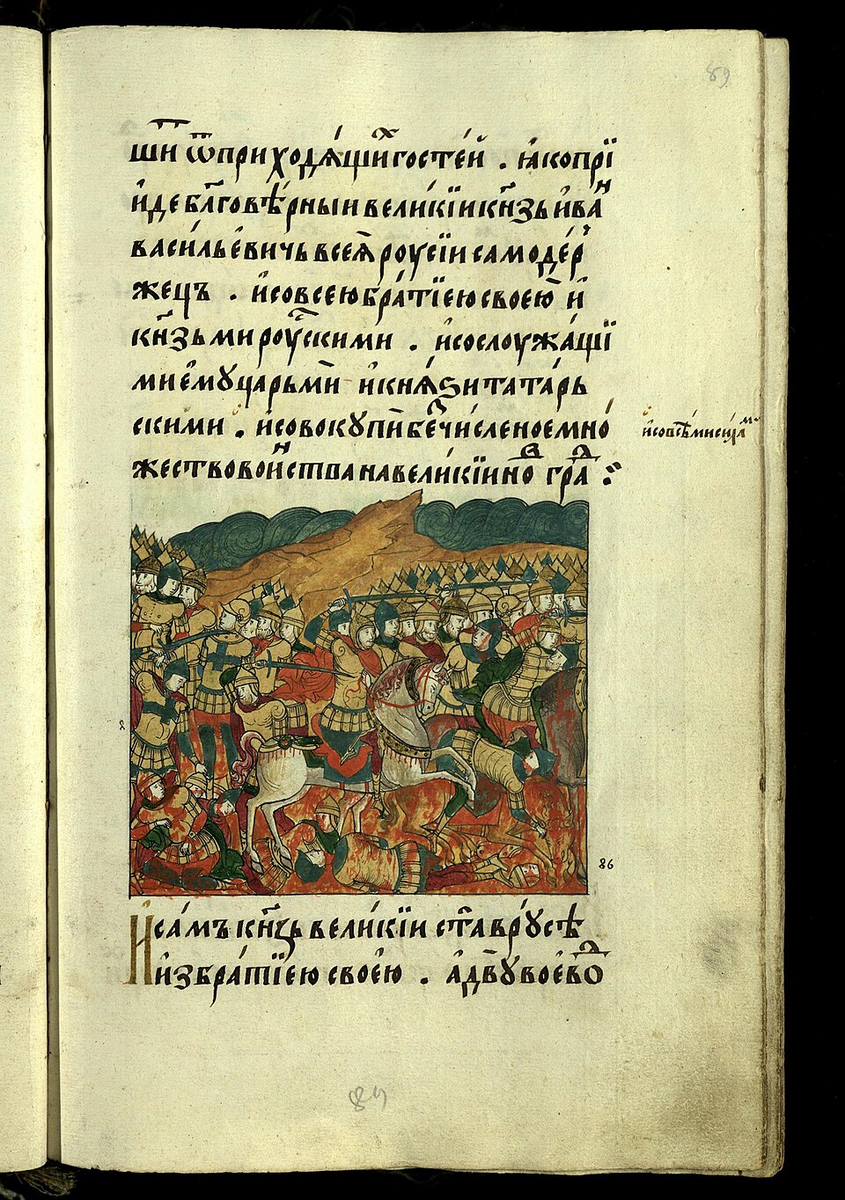 89
ши ѿ приходѧ́щиⷯ гостеⷤй . ꙗко прїи́де бл҃говѣ́рныи вели́кїи кн҃зь ива́ⷩ
васи́льевичь всеѧ̀ роусі́и самоде́рⷤ
жець . и҆ со всею бра́тїею своею̀ и҆
кн҃зьми роу́скими . и҆ со слоужа́щі
ми емꙋ царьмѝ и҆ кнѧ̑ѕи тата́рь
скими . и҆ совокупѝ беⷥчи́сленое мно́
и҆ со всѣ́ми си́лаⷨ
жество вои́ⷩства на вели́кїи ноⷡ҇ граⷣ :
86
И са́мъ кн҃зь вели́кїи ста̀ в рꙋсѣ̀
и҆з бра́тїею своею . а҆ двꙋ̀ воевоⷣ
89